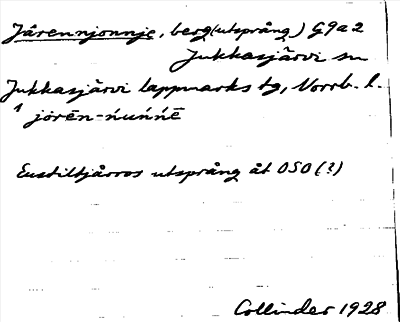 Jårennjonnje, berg (utsprång) G9a2
Jukkasjärvi sn
Jukkasjärvi lappmarks tg, Norrb. l.
jörēn-ńuńńē
Eustiltjårros utsprång åt OSO (?)
Collinder 1928